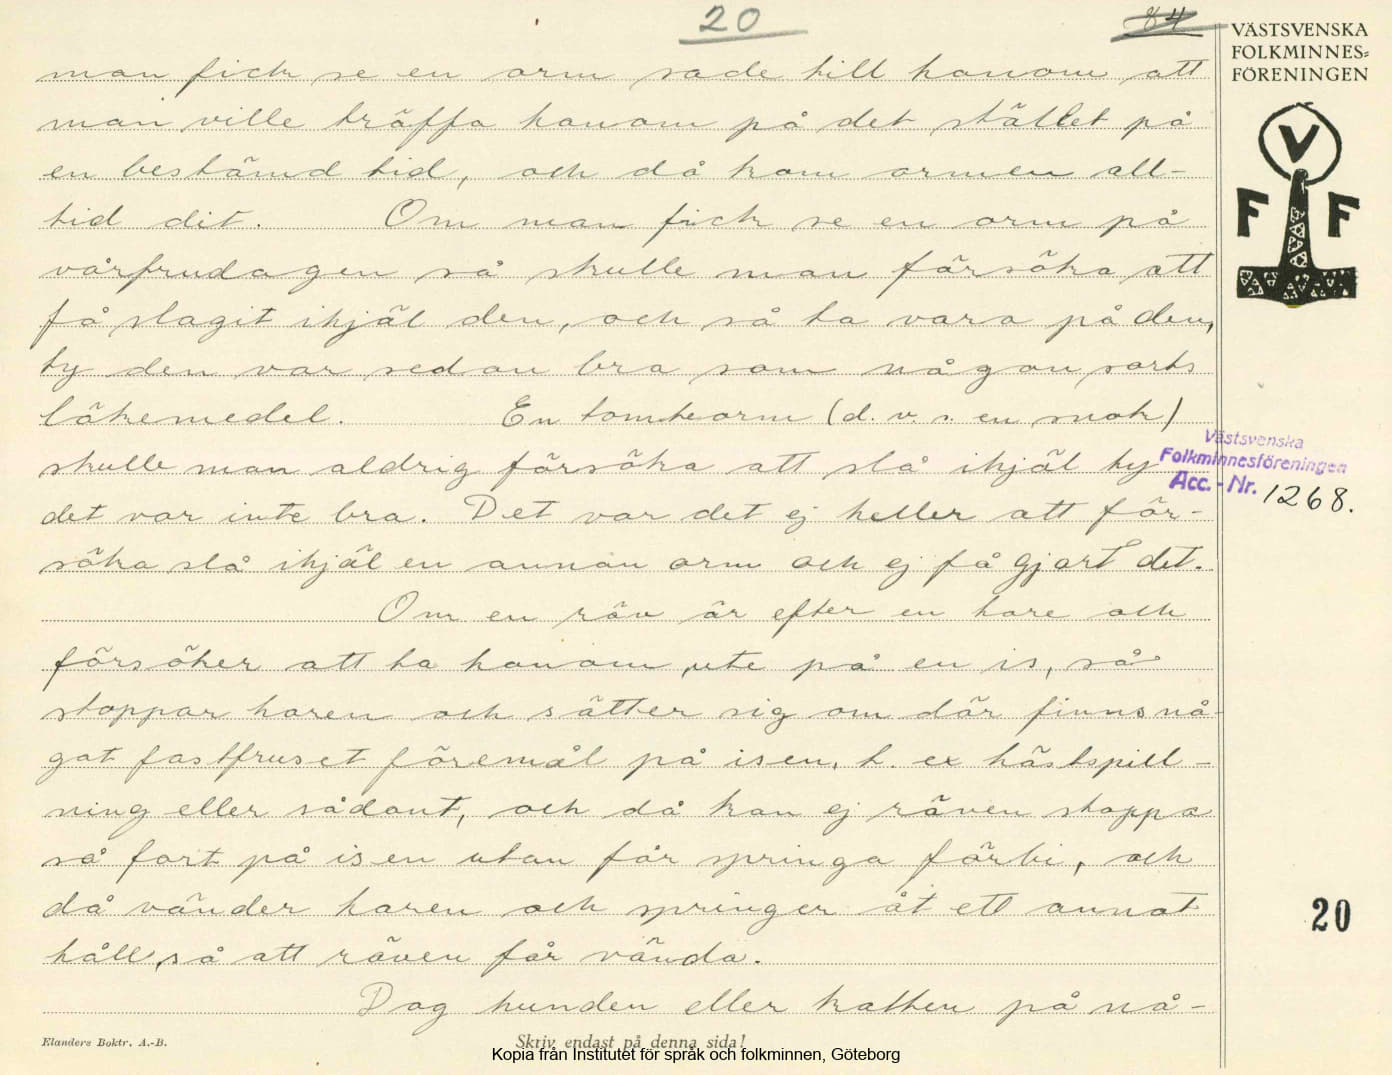 20
84
VÄSTSVENSKA
FOLKMINNES=
FÖRENINGEN
V
F F
man fick se en orm sade till honom att
man ville träffa honom på det stället på
en bestämd tid, och då kom ormen all-
tid dit. Om man fick se en orm på
vårfrudagen så skulle man försöka att
få slagit ihjäl den, och så ta vara på den,
ty den var sedan bra som någon sorts
läkemedel. En tomteorm (d. v. s. en snok)
skulle man aldrig försöka att slå ihjäl ty
det var inte bra. Det var det ej heller att för-
söka slå ihjäl en annan orm och ej få gjort det.
Om en räv är efter en hare och
försöker att ta honom, ute på en is, så
stoppar haren och sätter sig om där finns nå-
got fastfruset föremål på isen, t. ex hästspill-
ning eller sådant, och då kan ej räven stoppa
så fort på isen utan får springa förbi, och
då vänder haren och springer åt ett annat
håll, så att räven får vända.
Dog hunden eller katten på nå-
Västsvenska
Folkminnesföreningen
Acc.-Nr. 1268.
20
Elanders Boktr. A.-B.
Skriv endast på denna sida!
Kopia från Institutet för språk och folkminnen, Göteborg